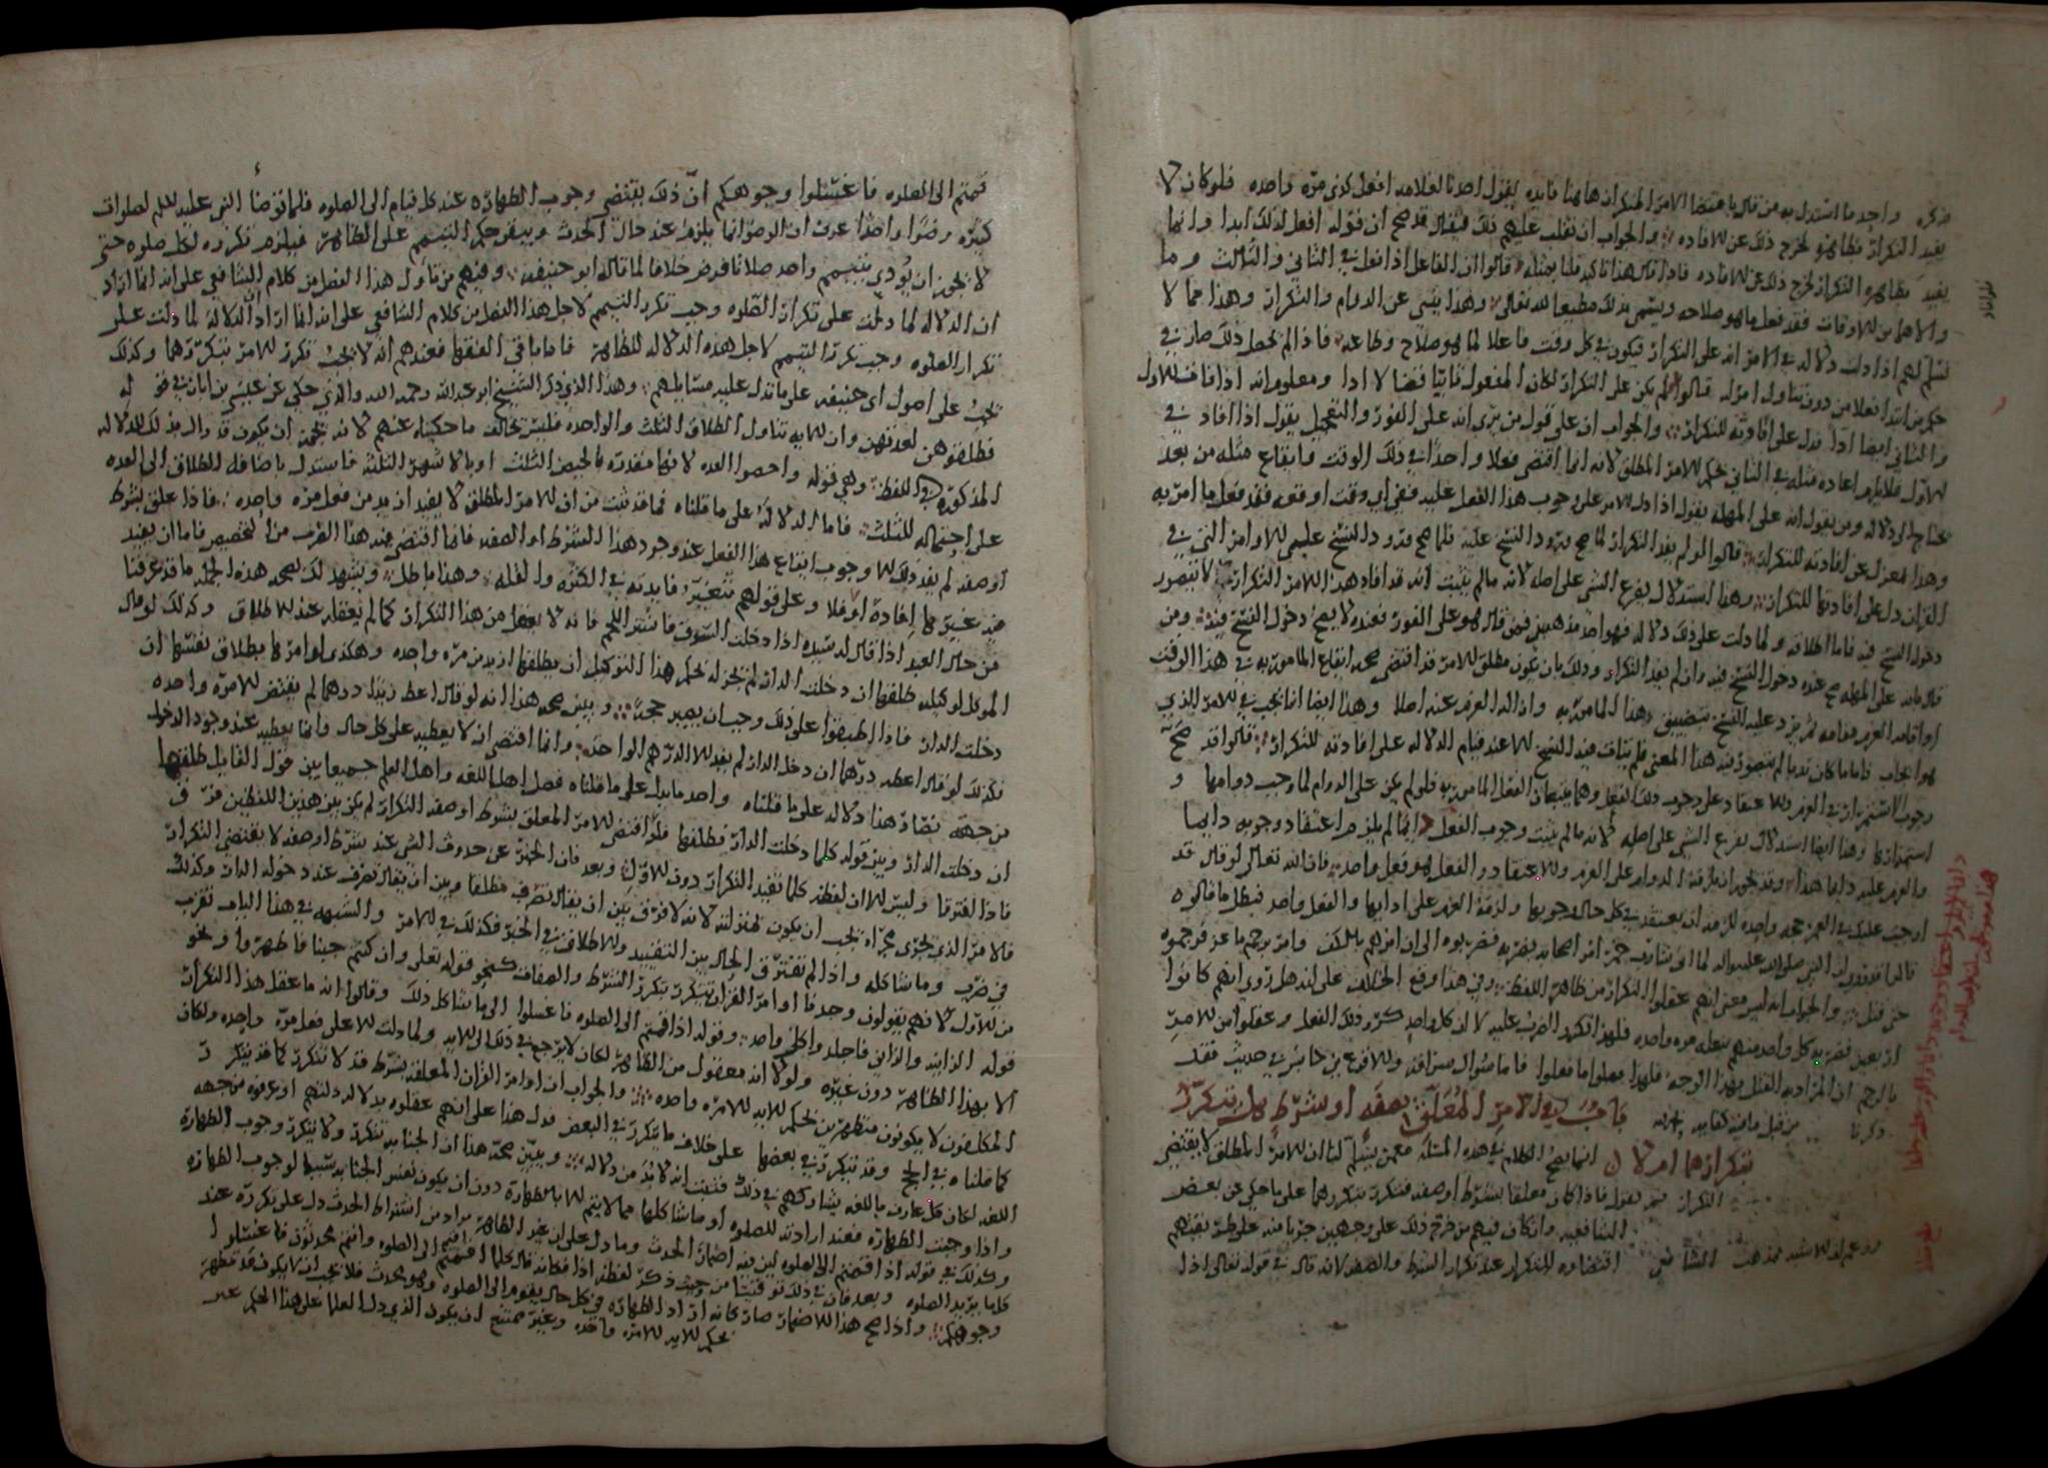 ذكره واحد ما استدل به من قال باقتضا الامر التكرار هاهنا فايده لقول احدنا لغلامه افعل كذى مره واحده فلو كان لا
يفيد التكرار بظاهره لخرج ذلك عن الافاده والجواب ان نقلب عليهم ذلك فيقال قد صح ان قوله افعل كذلك ابدا وانما
يفيد بظاهره التكرار لخرج ذلك عن الافاده فاذا قال هذا تاكيد قلنا بمثله قالوا ان الفاعل اذا فعل في الثاني والثالث وما
والاهما من الاوقات فقد فعل ما هو صلاحه ويسمى بذلك مطيعا لله تعالى وهذا ينبى عن الدوام والتكرار وهذا مما لا
نسلم لهم اذا دلت دلاله في الامر انه على التكرار فيكون في كل وقت فاعلا لما هو صلاح وطاعه فاذا لم يحصل ذلك صار في
حكم من ابتدا فعلا من دون تناول امر له قالوا لو لم يكن على التكرار لكان المفعول ثانيا قضا لا ادا ومعلوم انه اذا فات الاول
والثاني ايضا ادا فدل على افادته للتكرار والجواب ان على قول من يرى انه على الفور والتعجيل يقول اذا افاد في
الاول فلا يلزم اعاده مثله في الثاني بحكم الامر المطلق لانه انما اقتضى فعلا واحدا في ذلك الوقت وايقاع مثله من بعد
يحتاج الى دلاله ومن يقول انه على المهله يقول اذا دل الامر على وجوب هذا الفعل عليه ففي اي وقت اوقعه فقد فعل ما امر به
وهذا بمعزل عن افادته للتكرار قالوا لو لم يفد التكرار لما صح ورود النسخ عليه فلما صح ورود النسخ على الاوامر التي في
القران دل على افادتها للتكرار وهذا استدلال بفرع الشي على اصله لانه ما لم يثبت انه قد افاد هذا الامر التكرار لا يتصور
دخول النسخ فيه فاما اطلاقه ولما دلت على ذلك دلاله فهو احد مذهبين فمن قال هو على الفور فعنده لا يصح دخول النسخ فيه ومن
قال بانه على المهله صح عنده دخول النسخ فيه وان لم يفد التكرار وذلك بان يكون مطلق الامر قد اقتضى صحه ايقاع المامور به في هذا الوقت
او اقامه العزم مقامه ثم يرد عليه النسخ بتضييق هذا المامور به وازاله العزم عنه اصلا وهذا ايضا انما يجب في الامر الذي
هو ايجاب فاما ما كان ندبا لم يتصور فيه هذا المعنى فلم يتات فيه النسخ الا عند قيام الدلاله على افادته للتكرار قالوا قد صح
وجوب الاستمرار في العزم والاعتقاد على وجوب ذلك الفعل وهما يتبعان الفعل المامور به فلو لم يكن على الدوام لما وجب دوامها و
استمرارها وهذا ايضا استدلال بفرع الشي على اصله لانه ما لم يثبت وجوب الفعل دايما لم يلزم اعتقاد وجوبه دايما
والعزم عليه دايما هذا وقد يجوز ان يلزمه الدوام على العزم والاعتقاد والفعل هو فعل واحد فان الله تعالى لو قال قد
اوجبت عليك في العمر حجه واحده للزمه ان يعتقد في كل حال وجوبها ولزمه العزم على ادايها والفعل واحد فبطل ما قالوه
قالوا قد روي ان النبي صلى الله عليه واله لما اتي بشارب خمر امر اصحابه بضربه فضربوه الى ان امرهم بالكف وامر برجم ماعز فرجموه
حتى قتل والجواب انه ليس معنى انهم عقلوا التكرار من ظاهر اللفظ وفي هذا وقع الخلاف على انه هل روي انهم كانوا
اربعين فضربه كل واحد منهم بنعله مره واحده فلهذا تكرر الضرب عليه لا ان كل واحد كرر ذلك الفعل وعقلوا من الامر
بالرجم ان المراد به القتل بهذا الوجه فلهذا فعلوا ما فعلوا فاما سوال سراقه والاقرع بن حابس في حديث فقد
ذكرنا من قبل ما فيه كفايه بحمد الله باب في الامر المعلق بصفه او بشرط هل يتكرر
بتكرارهما ام لا انما يصح الكلام في هذه المسئله مع من يسلم لنا ان الامر المطلق لا يقتضي
التكرار ثم يقول فاذا كان معلقا بشرط او صفه فتكرر بتكررهما على ما حكي عن بعض
الشافعيه وان كان فيهم من خرج ذلك على وجهين جريا منه على طريقتهم
وزعم ان الاشبه بمذهب الشافعي اقتضاوه للتكرار عند تكرار الشرط والصفه لانه قال في قوله تعالى اذا
قمتم الى الصلوه فاغسلوا وجوهكم ان ذلك يقتضي وجوب الطهاره عند كل قيام الى الصلوه فلما توضأ النبي عليه السلم لصلوات
كثيره وضوا واحدا عرف ان الوضو انما يلزم عند حال الحدث ويبقى حكم التيمم على الظاهر فيلزم تكرره لكل صلوه حتى
لا يجوز ان يودي بتيمم واحد صلاتا فرض خلافا لما قاله ابو حنيفه وفيهم من تاول هذا الفصل من كلام الشافعي على انه انما اراد
ان الدلاله لما دلت على تكرار الصلوه وجب تكرر التيمم لاجل هذا الفصل من كلام الشافعي على انه انما اراد ان الدلاله لما دلت على
تكرار الصلوه وجب تكرر التيمم لاجل هذه الدلاله للظاهر فاما باقي الفقها فعندهم انه لا يجب تكرر الامر بتكررها وكذلك
يجب على اصول ابي حنيفه على ما تدل عليه مسايلهم وهذا الذي ذكر الشيخ ابو عبد الله رحمه الله والذي حكي عن عيسى بن ابان في قوله
فطلقوهن لعدتهن وان الايه تناول الطلاق الثلث والواحده فليس يخالف ما حكيناه عنهم لانه يجوز ان يكون قد قال بذلك للدلاله
المذكوره في اللفظ وهي قوله واحصوا العده لانها مقدره بالحيض الثلث او بالاشهر الثلثه فاستدل باضافه الطلاق الى العده
على احتماله للثلث فاما الدلاله على ما قلناه فما قد ثبت من ان الامر المطلق لا يفيد ازيد من فعل مره واحده فاذا علق بشرط
او صفه لم يفد ذلك الا وجوب ايقاع هذا الفعل عند وجود هذا الشرط او الصفه فانما اقتضى فيه هذا الضرب من التخصيص فاما ان يفيد
فيه غير ما افاده اولا وعلى قولهم تتغير فايدته في الكثره والقله وهذا باطل ويشهد لك بصحه هذه الجمله ما قد عرفنا
من حال العبد اذا قال له سيده اذا دخلت السوق فاشتر اللحم فانه لا يعقل من هذا التكرار كما لم يعقله عند الاطلاق وكذلك لو قال
الموكل لوكيله طلقها ان دخلت الدار لم يجز له بحكم هذا التوكيل ان يطلقها ازيد من مره واحده وهكذى لو امرها بطلاق نفسها ان
دخلت الدار فاذا اطبقوا على ذلك وجب ان يصير حجه ويبين صحه هذا انه لو قال اعط زيدا درهما لم يقتض الا مره واحده
فكذلك لو قال اعطه درهما ان دخل الدار لم يفد الا الدرهم الواحد وانما اقتضى ان لا يعطيه على كل حال وانما يعطيه عند وجود الدخول
من جهته فصار هذا دلاله على ما قلناه واحد ما يدل على ما قلناه فصل اهل اللغه واهل العلم جميعا بين قول القايل طلقها
ان دخلت الدار وبين قوله كلما دخلت الدار فطلقها فلو اقتضى الامر المعلق بشرط او صفه التكرار لم يكن بين هذين اللفظين فرق
فاذا افترقا وليس الا ان لفظه كلما تفيد التكرار دون الاول وبعد فان الخبر عن حدوث الشي عند شرط او صفه لا يقتضي التكرار
فالامر الذي يجري مجراه يجب ان يكون بمنزلته لانه لا فرق بين ان يقال تصرف مطلقا وبين ان يقال تصرف عند دخوله الدار وكذلك
في ضرب وما شاكله واذا لم تفترق الحال بين التقييد والاطلاق في الخبر فكذلك في الامر والشبهه في هذا الباب تقرب
من الاول لانهم يقولون وجدنا اوامر القران تتكرر بتكرر الشرط والصفات كنحو قوله تعلى وان كنتم جنبا فاطهروا ونحو
قوله الزانيه والزاني فاجلدوا كل واحد وقوله اذا قمتم الى الصلوه فاغسلوا الى ما شاكل ذلك وقالوا انه ما عقل هذا التكرار
الا بهذا الظاهر دون غيره ولولا انه معقول من الظاهر لكان لا يرجع في ذلك الى الايه ولما دلت الا على فعل مره واحده ولكان
المكلفون لا يكونون متطهرين بحكم الايه الا مره واحده والجواب ان اوامر القران المعلقه بشرط قد لا تتكرر كما قد يتكرر
كما قلناه في الحج وقد يتكرر في بعضها على خلاف ما يتكرر في البعض فدل هذا على انهم عقلوه بدلاله دلتهم او عرفوه من جهه
اللغه لكان كل عارف باللغه يشاركهم في ذلك فثبت انه لا بد من دلاله ويبين صحه هذا ان الجنابه تتكرر ولا يتكرر وجوب الطهاره
واذا وجبت الطهاره فعند ارادته للصلوه او ما شاكلها مما لا يتم الا بالطهاره دون ان يكون نفس الجنابه سببا لوجوب الطهاره
وكذلك في قوله اذا قمتم الى الصلوه ليس فيه اضمار الحدث وما دل على ان غير الظاهر مراد من اشتراط الحدث دل على تكرره عند
كلما يريد الصلوه وبعد فان في ذلك توقيتا من حيث ذكر لفظه اذا فكانه قال كلما اقمتم الى الصلوه وانتم محدثون فاغسلوا
وجوهكم واذا صح هذا الاضمار صار كانه اراد الطهاره في كل حال يقوم الى الصلوه وهو محدث فلا يجب ان لا يكون قد تطهر
بحكم الايه الا مره واحده وغير ممتنع ان يكون الذي دل العلما على هذا الحكم غير